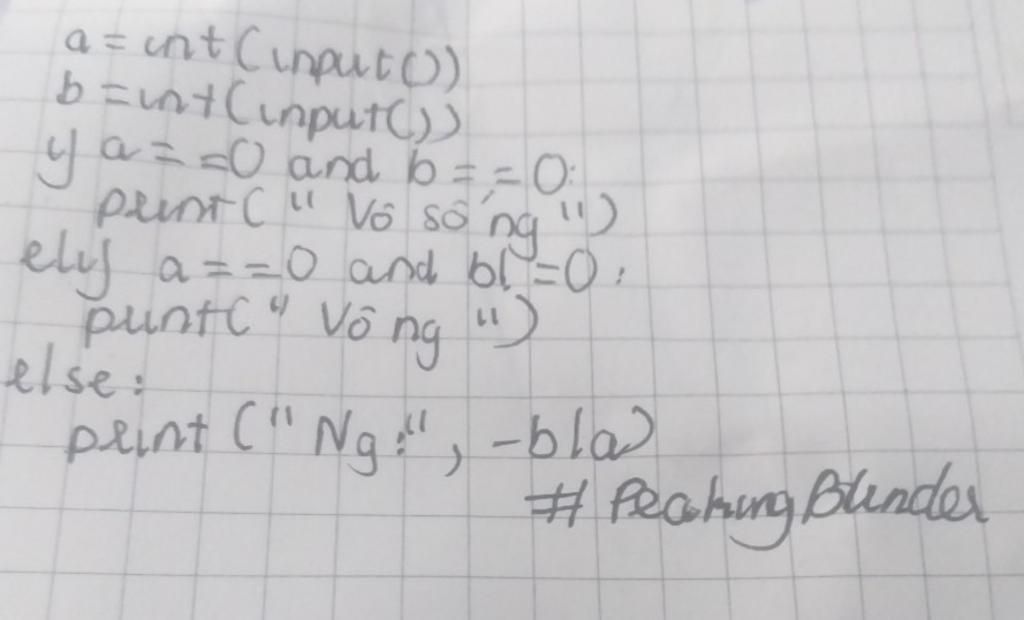 a = int(input())
b = int(input())
if a == 0 and b == 0:
print(" Vô số ng ")
elif a == 0 and b! = 0:
print(" Vô ng ")
else:
print (" Ng: ", -b/a)
# PeakingBlinder